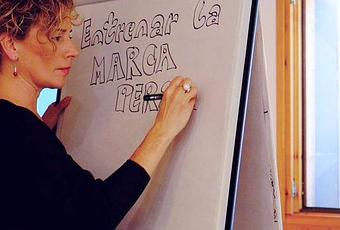 Entrenar la
MARCA
PERS